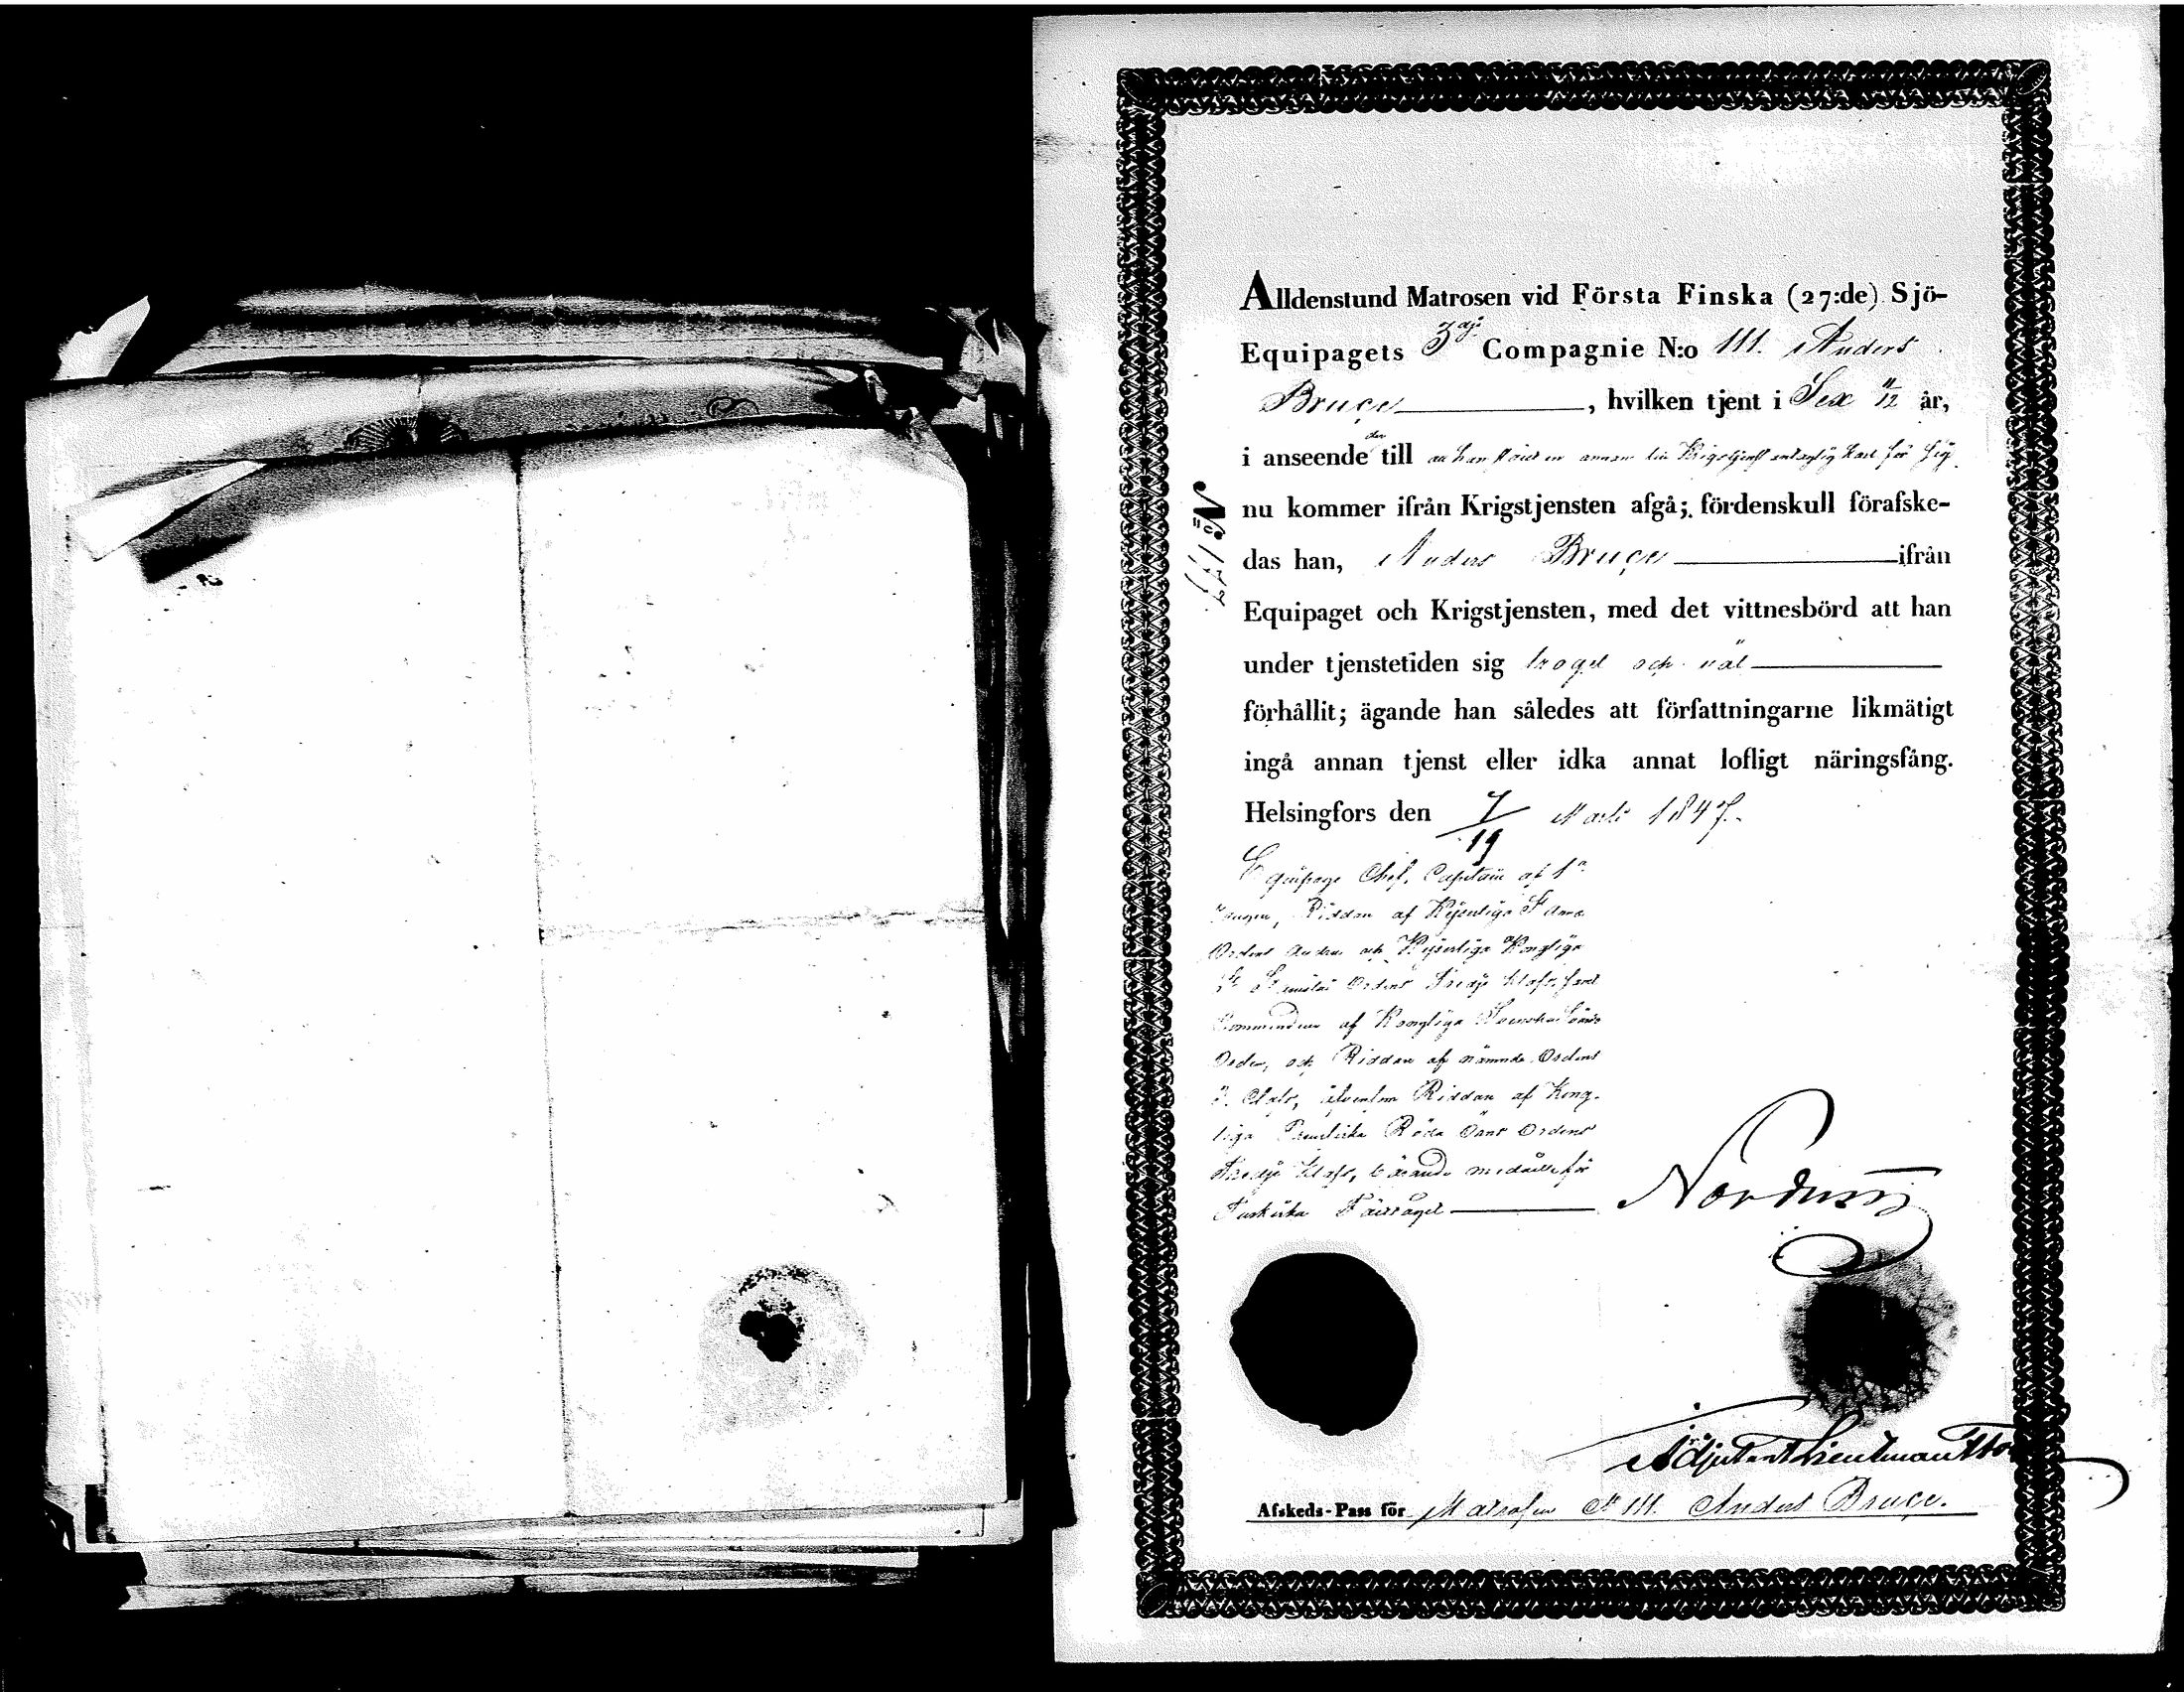 Alldenstund Matrosen vid Första Finska (27:de) Sjö-
Equipagets 3dje Compagnie N:o 111. Anders
Bruce, hvilken tjent i Sex 11/12 år,
i anseende till att han en annan Krigstjenst antaglig Karl för sig
nu kommer ifrån Krigstjensten afgå; fördenskull förafske-
das han, Anders Bruce ifrån
Equipaget och Krigstjensten, med det vittnesbörd att han
under tjenstetiden sig troget och väl
förhållit; ägande han således att författningarne likmätigt
ingå annan tjenst eller idka annat lofligt näringsfång.
Helsingfors den 7/19 Marti 1847.
Equipage Chef, Capitain af 1a
Rangen, Riddare af Kejserliga St Annæ
Ordens Andra och Kejserliga Kongliga
St Stanislai Ordens Tredje Klass, samt
Commendeur af Kongliga Svenska Svärds
Orden, och Riddare af nämnde Ordens
Class, äfvensom Riddare af Kong-
liga Preussiska Röda Örns Ordens
Tredje Klass, bärande medaille för
Turkiska Fälttåget
N:o
Adjutant Lieutenant
Afskeds-Pass för Matrosen N 111. Anders Bruce.